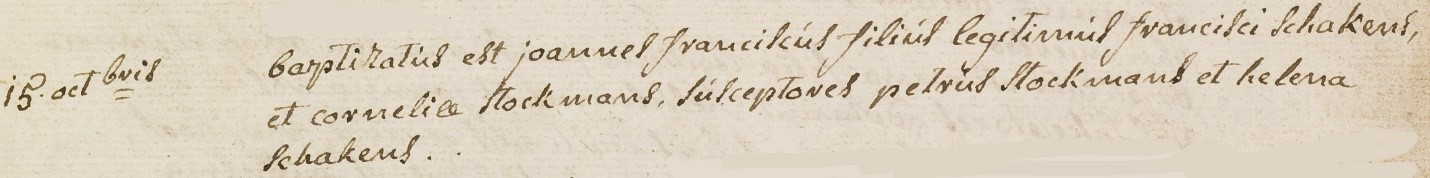 15. octbris baptizatus est joannes franciscus filius legitimus francisci schakens,
et corneliæ stockmans, susceptores petrus stockmans et helena
schakens.